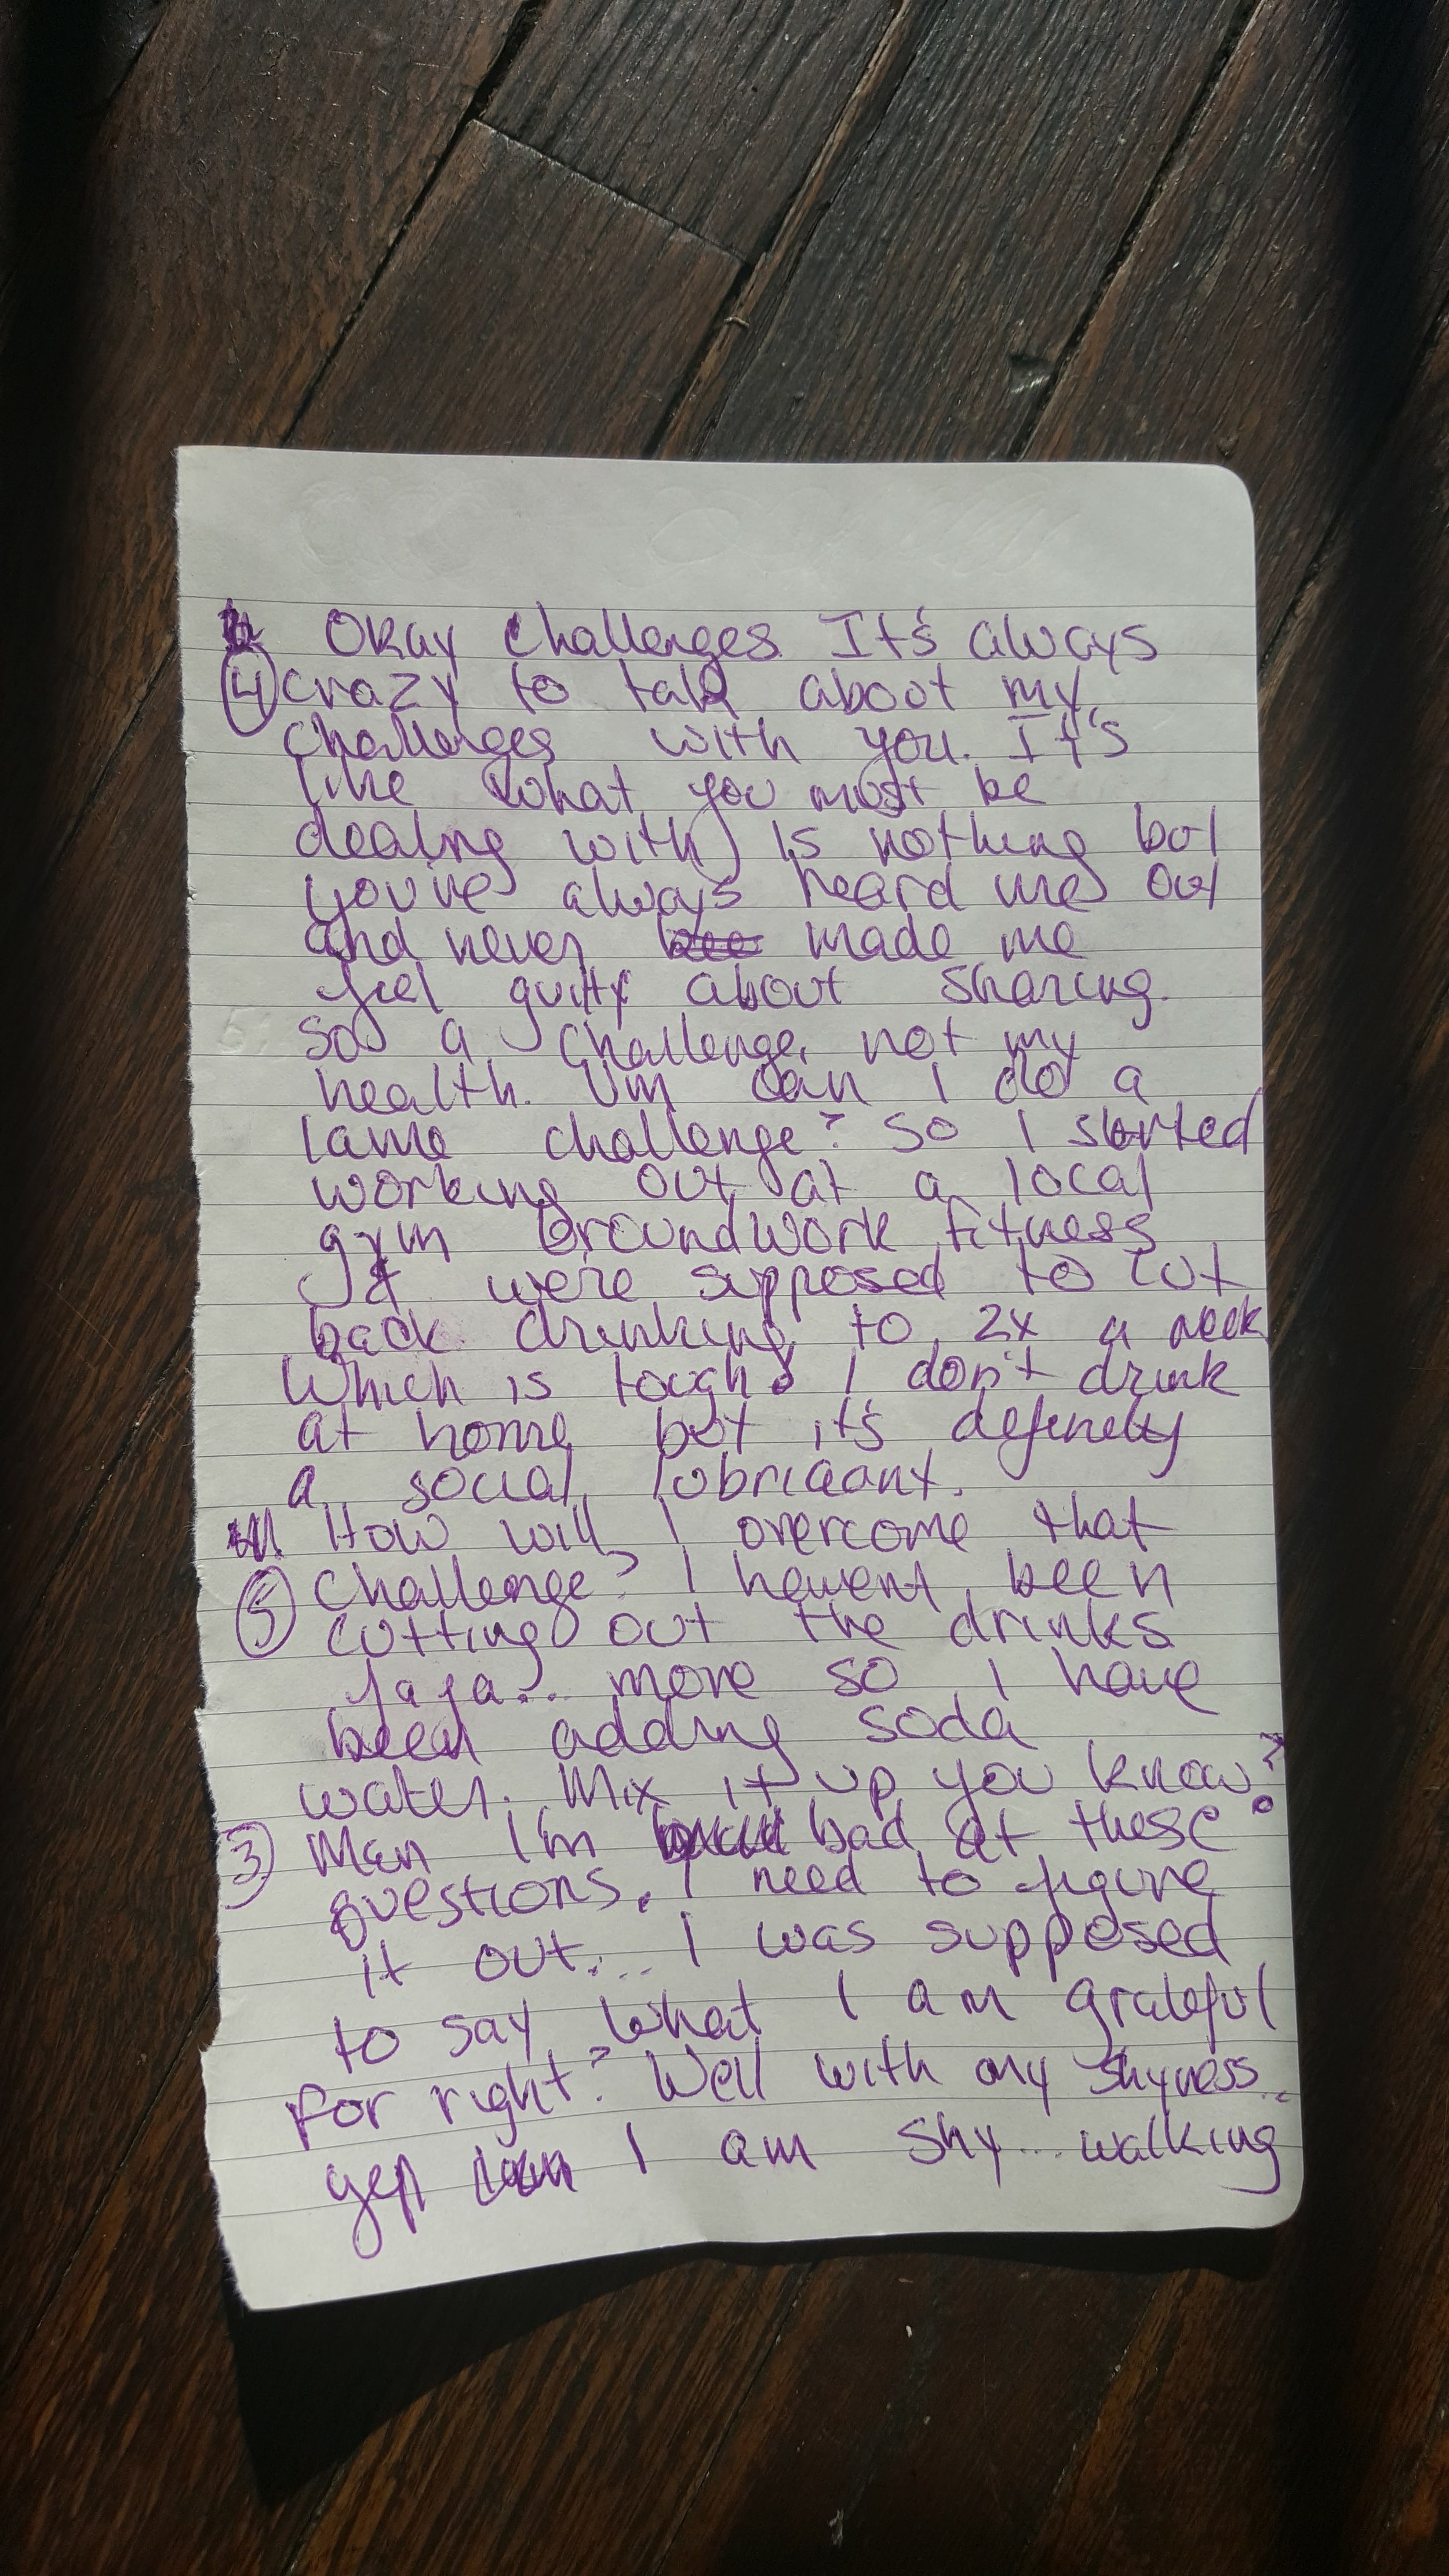 Okay Challenges. It's always
④ crazy to talk about my
challenges with you. It's
like what you must be
dealing with is nothing but
you've always heard me out
and never made me
feel guilty about sharing.
So a challenge, not my
health. Um can I do a
lame challenge? So I started
working out at a local
gym Groundwork Fitness
& we're supposed to cut
back drinking to 2x a week
Which is tough. I don't drink
at home but it's definetly
a social lubricant.
How will I overcome that
⑤ Challenge? I havent been
cutting out the drinks
jaja... more so I have
been adding soda
water. Mix it up you know?
③ Man I'm bad at these
questions. I need to figure
it out.... I was supposed
to say what I am grateful
for right? Well with my shyness..
yep I am shy... walking